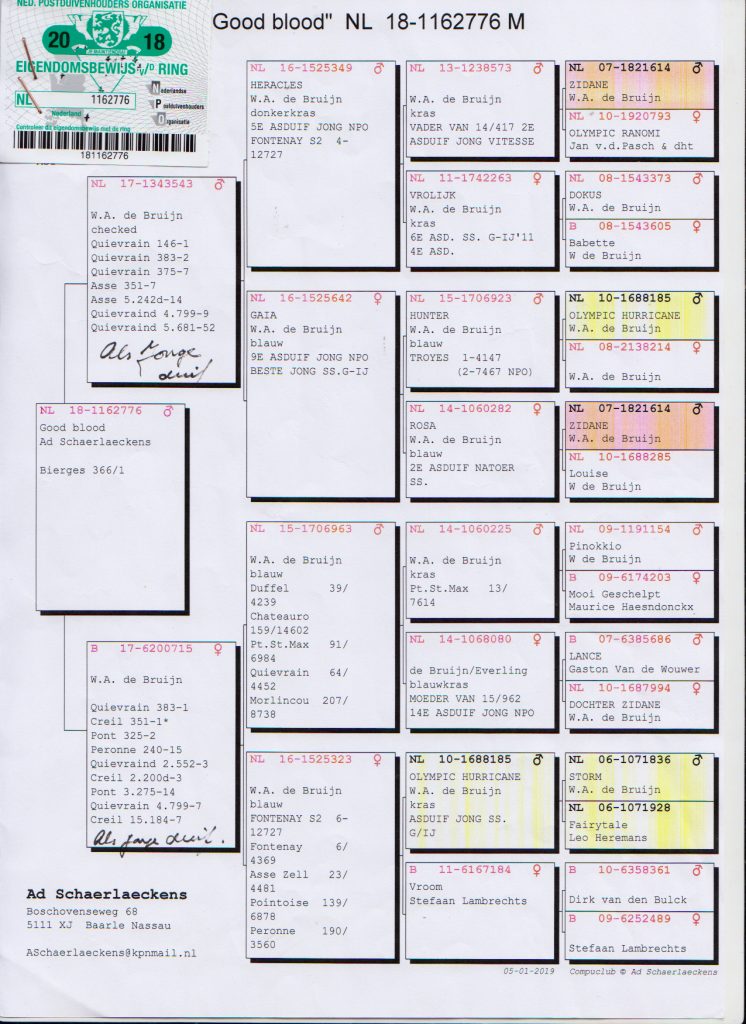 NED. POSTDUIVENHOUDERS ORGANISATIE
20 18
EIGENDOMSBEWIJS v/D RING
NL 1162776
Nederland
Nederlandse
Postduivenhouders
Organisatie
Controleer dit eigendomsbewijs met de ring
181162776
Good blood" NL 18-1162776 M
NL 18-1162776 ♂
Good blood
Ad Schaerlaeckens
Bierges 366/1
NL 17-1343543 ♂
W.A. de Bruijn
checked
Quievrain 146-1
Quievrain 383-2
Quievrain 375-7
Asse 351-7
Asse 5.242d-14
Quievraind 4.799-9
Quievraind 5.681-52
Als Jonge
duif
B 17-6200715 ♀
W.A. de Bruijn
Quievrain 383-1
Creil 351-1*
Pont 325-2
Peronne 240-15
Quievraind 2.552-3
Creil 2.200d-3
Pont 3.275-14
Quievrain 4.799-7
Creil 15.184-7
Als jonge duif.
NL 16-1525349 ♂
HERACLES
W.A. de Bruijn
donkerkras
5E ASDUIF JONG NPO
FONTENAY S2 4-
12727
NL 16-1525642 ♀
GAIA
W.A. de Bruijn
blauw
9E ASDUIF JONG NPO
BESTE JONG SS.G-IJ
NL 15-1706963 ♂
W.A. de Bruijn
blauw
Duffel 39/
4239
Chateauro
159/14602
Pt.St.Max 91/
6984
Quievrain 64/
4452
Morlincou 207/
8738
NL 16-1525323 ♀
W.A. de Bruijn
blauw
FONTENAY S2 6-
12727
Fontenay 6/
4369
Asse Zell 23/
4481
Pointoise 139/
6878
Peronne 190/
3560
NL 13-1238573 ♂
W.A. de Bruijn
kras
VADER VAN 14/417 2E
ASDUIF JONG VITESSE
NL 11-1742263 ♀
VROLIJK
W.A. de Bruijn
kras
6E ASD. SS. G-IJ'11
4E ASD.
NL 15-1706923 ♂
HUNTER
W.A. de Bruijn
blauw
TROYES 1-4147
(2-7467 NPO)
NL 14-1060282 ♀
ROSA
W.A. de Bruijn
blauw
2E ASDUIF NATOER
SS.
NL 14-1060225 ♂
W.A. de Bruijn
kras
Pt.St.Max 13/
7614
NL 14-1068080 ♀
de Bruijn/Everling
blauwkras
MOEDER VAN 15/962
14E ASDUIF JONG NPO
NL 10-1688185 ♂
OLYMPIC HURRICANE
W.A. de Bruijn
kras
ASDUIF JONG SS.
G/IJ
B 11-6167184 ♀
Vroom
Stefaan Lambrechts
NL 07-1821614 ♂
ZIDANE
W.A. de Bruijn
NL 10-1920793 ♀
OLYMPIC RANOMI
Jan v.d.Pasch & dht
NL 08-1543373 ♂
DOKUS
W.A. de Bruijn
B 08-1543605 ♀
Babette
W de Bruijn
NL 10-1688185 ♂
OLYMPIC HURRICANE
W.A. de Bruijn
NL 08-2138214 ♀
W.A. de Bruijn
NL 07-1821614 ♂
ZIDANE
W.A. de Bruijn
NL 10-1688285 ♀
Louise
W de Bruijn
NL 09-1191154 ♂
Pinokkio
W de Bruijn
B 09-6174203 ♀
Mooi Geschelpt
Maurice Haesndonckx
B 07-6385686 ♂
LANCE
Gaston Van de Wouwer
NL 10-1687994 ♀
DOCHTER ZIDANE
W.A. de Bruijn
NL 06-1071836 ♂
STORM
W.A. de Bruijn
NL 06-1071928 ♀
Fairytale
Leo Heremans
B 10-6358361 ♂
Dirk van den Bulck
B 09-6252489 ♀
Stefaan Lambrechts
Ad Schaerlaeckens
Boschovenseweg 68
5111 XJ Baarle Nassau
ASchaerlaeckens@kpnmail.nl
05-01-2019 Compuclub © Ad Schaerlaeckens